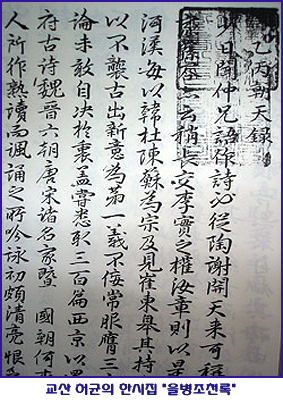 乙丙朝天錄
少日聞仲兄語作詩必從陶謝開天來可稱
云稍長交李實之權汝章則以
河漢海以韓杜陳蘇為宗及見崔東皐其持
以不襲古出新意為第一義不佞常服膺三
論未敢自決於衷盖嘗悉取三百篇西京以
府古詩魏晉六朝唐宋諸名家暨 國朝何
人所作熟讀而諷誦之所吟詠初頗清亮恨
교산 허균의 한시집 "을병조천록"